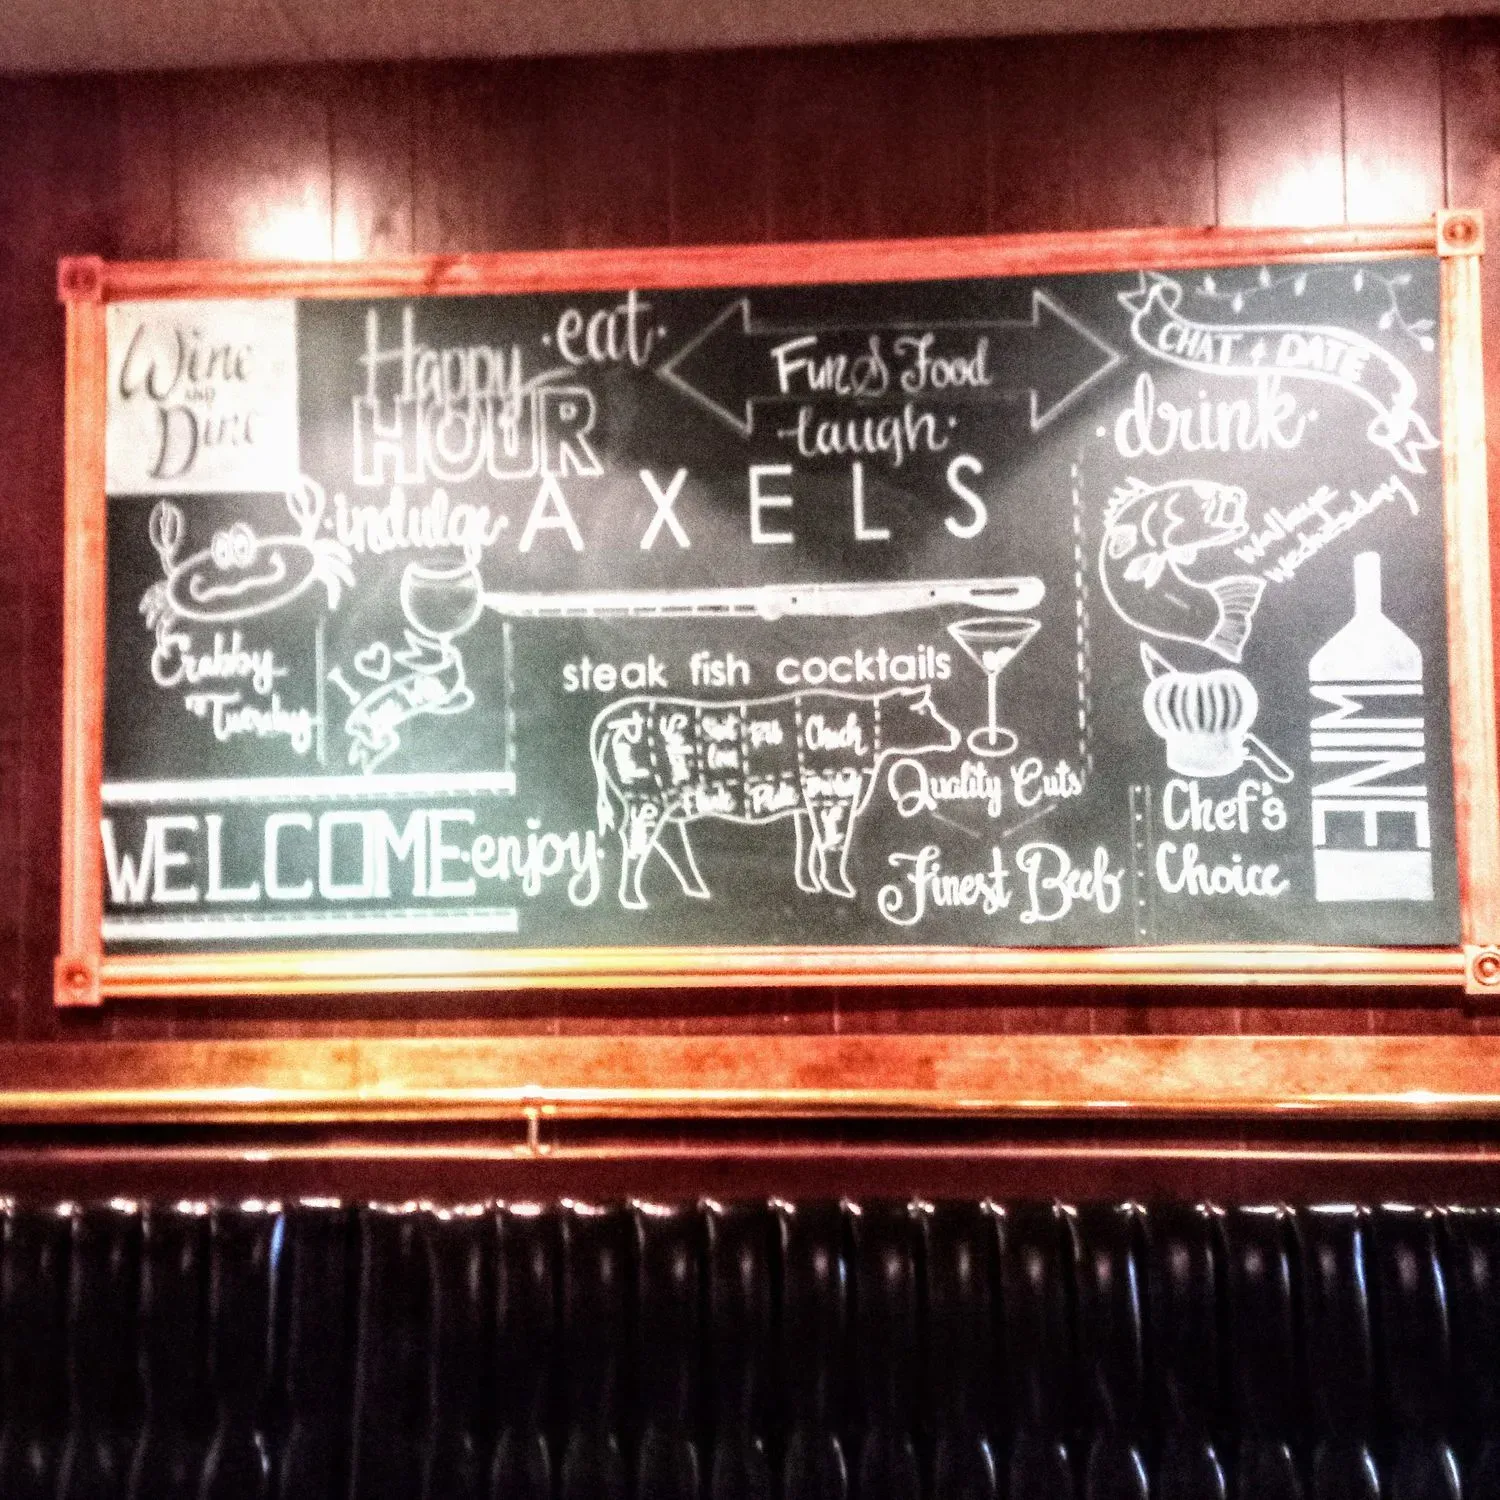 Wine
AND
Dine
Happy
HOUR
·eat·
Fun & Food
laugh·
CHAT & DATE
·drink·
·indulge·
AXELS
Walleye
Wednesday
Crabby
Tuesday
I ♡
steak fish cocktails
Rib
Chuck
Quality Cuts
Finest Beef
WELCOME
·enjoy·
Chef's
Choice
WINE